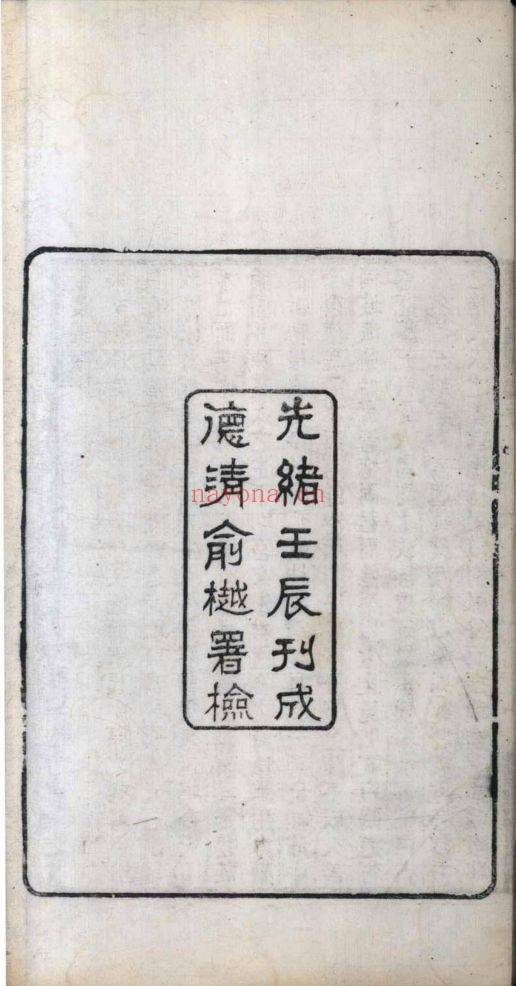 光緒壬辰刊成
德清俞樾署檢
nayona.cn